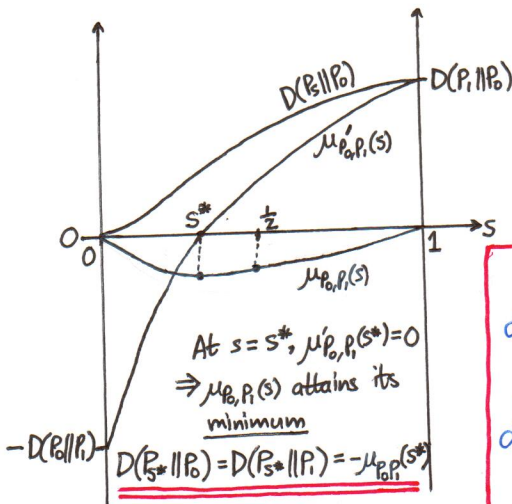 D(Pₛ||P₀)
D(P₁||P₀)
μ'P₀,P₁(s)
S*
1/2
0
0
1
s
μP₀,P₁(s)
At s = s*, μ'P₀,P₁(s*) = 0
⇒ μP₀,P₁(s) attains its
minimum
-D(P₀||P₁)
D(Pₛ*||P₀) = D(Pₛ*||P₁) = -μP₀P₁(s*)